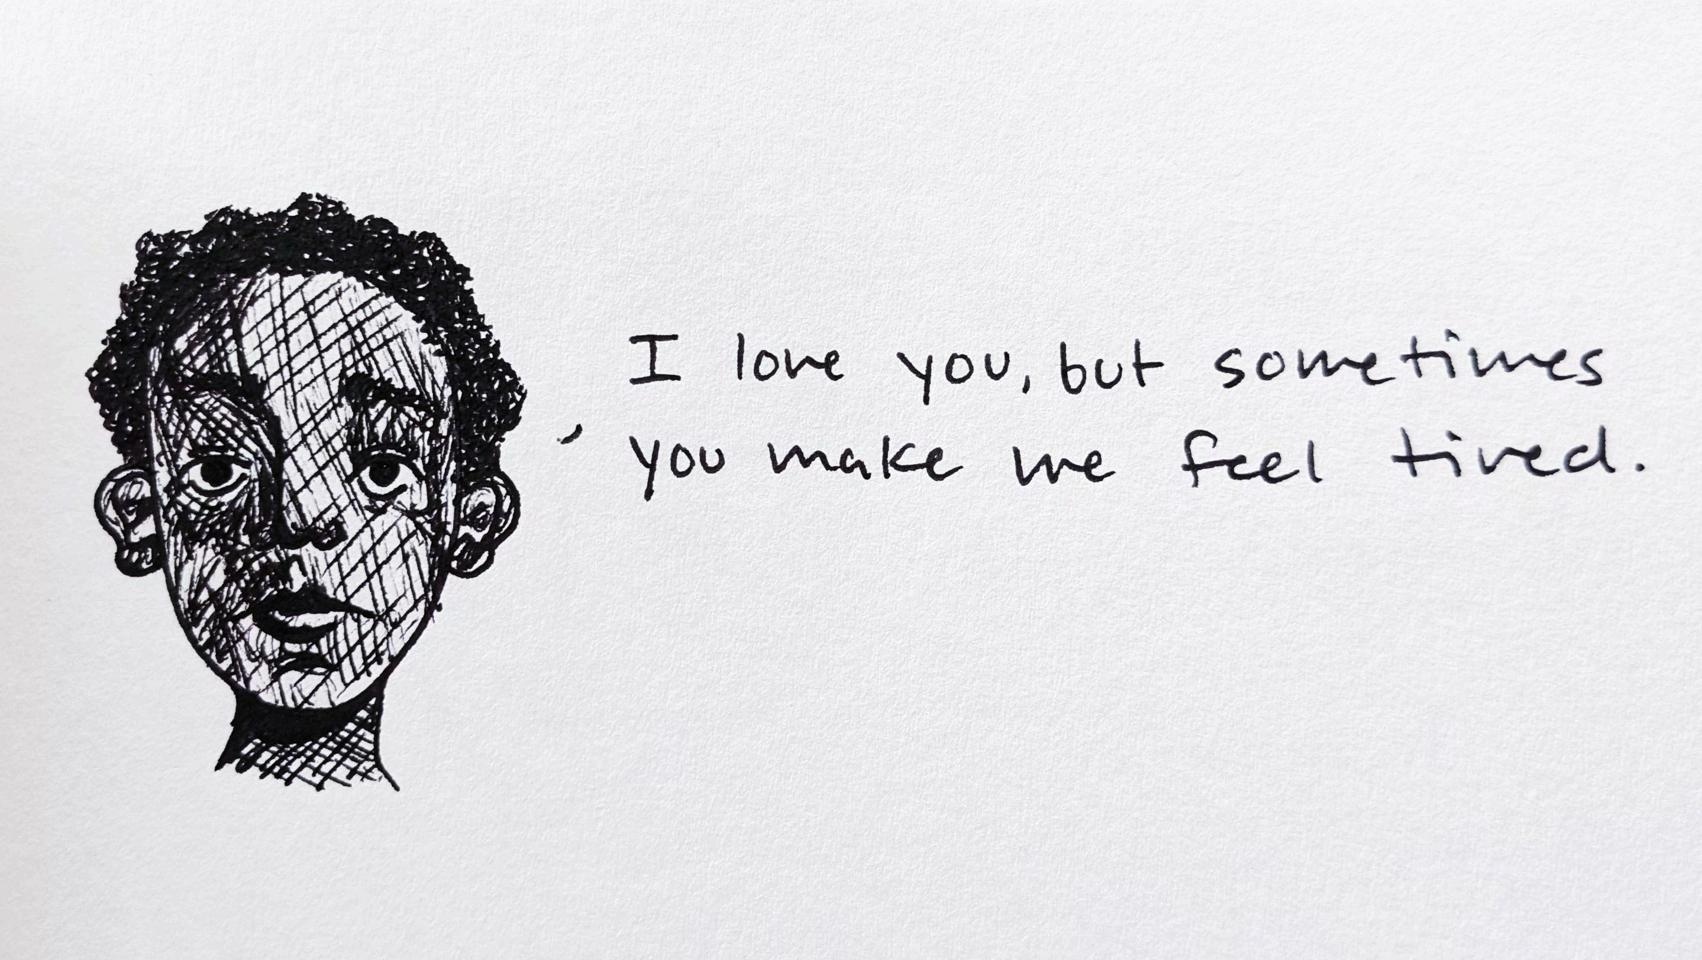 I love you, but sometimes
you make me feel tired.